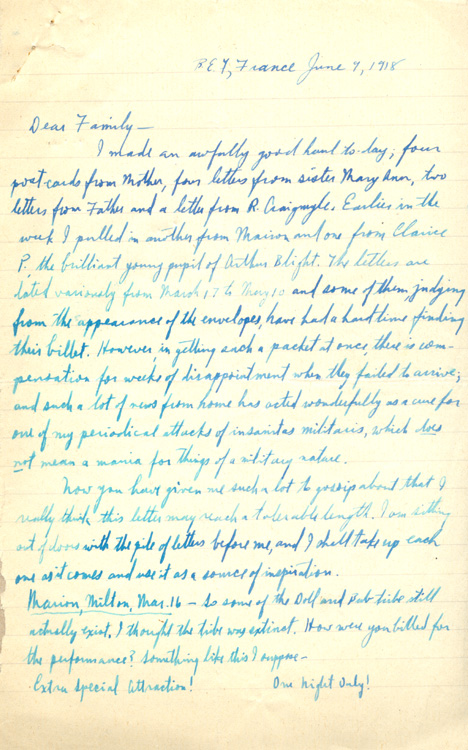 B.E.F., France June 7, 1918
Dear Family—
I made an awfully good haul to-day; four
post cards from Mother, four letters from sister Mary Ann, two
letters from Father and a letter from R. Craigmyle. Earlier in the
week I pulled in another from Marion and one from Claire
P. the brilliant young pupil of Arthur Blight. The letters are
dated variously from March 17 to May 10 and some of them, judging
from the appearance of the envelopes, have had a hard time finding
their billet. However in getting such a packet at once, there is com-
pensation for weeks of disappointment when they failed to arrive;
and such a lot of news from home has acted wonderfully as a cure for
one of my periodical attacks of insanitas militaris, which does
not mean a mania for things of a military nature.
Now you have given me such a lot to gossip about that I
really think this letter may reach a tolerable length. I am sitting
out of doors with the pile of letters before me, and I shall take up each
one as it comes and use it as a source of inspiration.
Marion, Milton, Mar. 16 – So some of the Doll and tribe still
actually exist. I thought the tribe was extinct. How were you billed for
the performance? Something like this I suppose–
Extra Special Attraction! One Night Only!